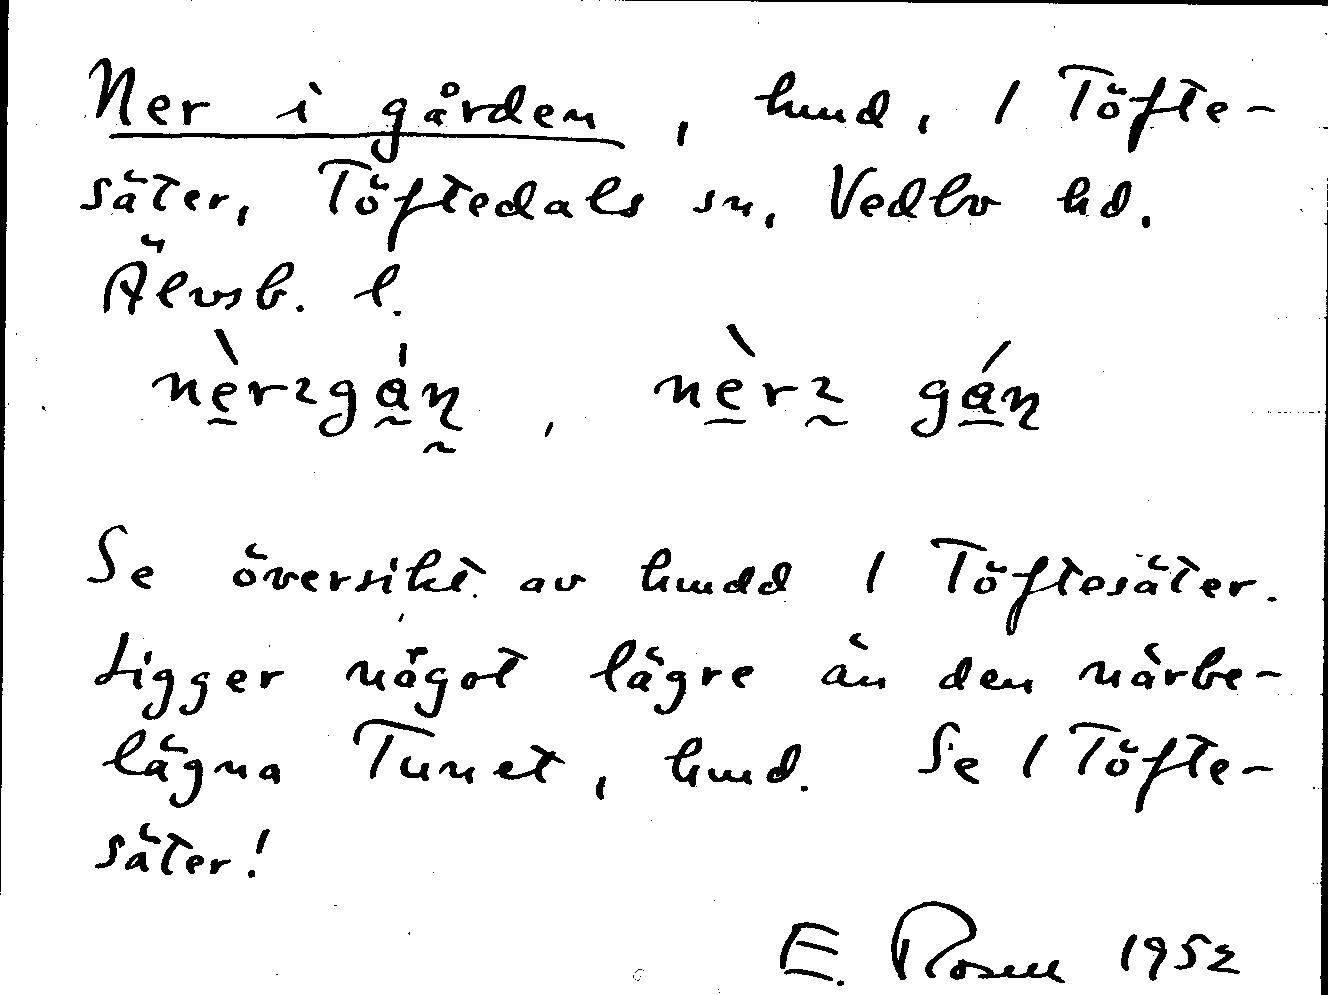 Ner i gården, hmd, 1 Töfte-
säter, Töftedals sn, Vedbo hd.
Älvsb. l.
nè̱rɿgá̰ṇ̃, nè̱rɿ̰ gá̱ṇ
Se översikt av hmdd 1 Töftesäter.
Ligger något lägre än den närbe-
lägna Tunet, hmd. Se 1 Töfte-
säter!
E. Rosen 1952